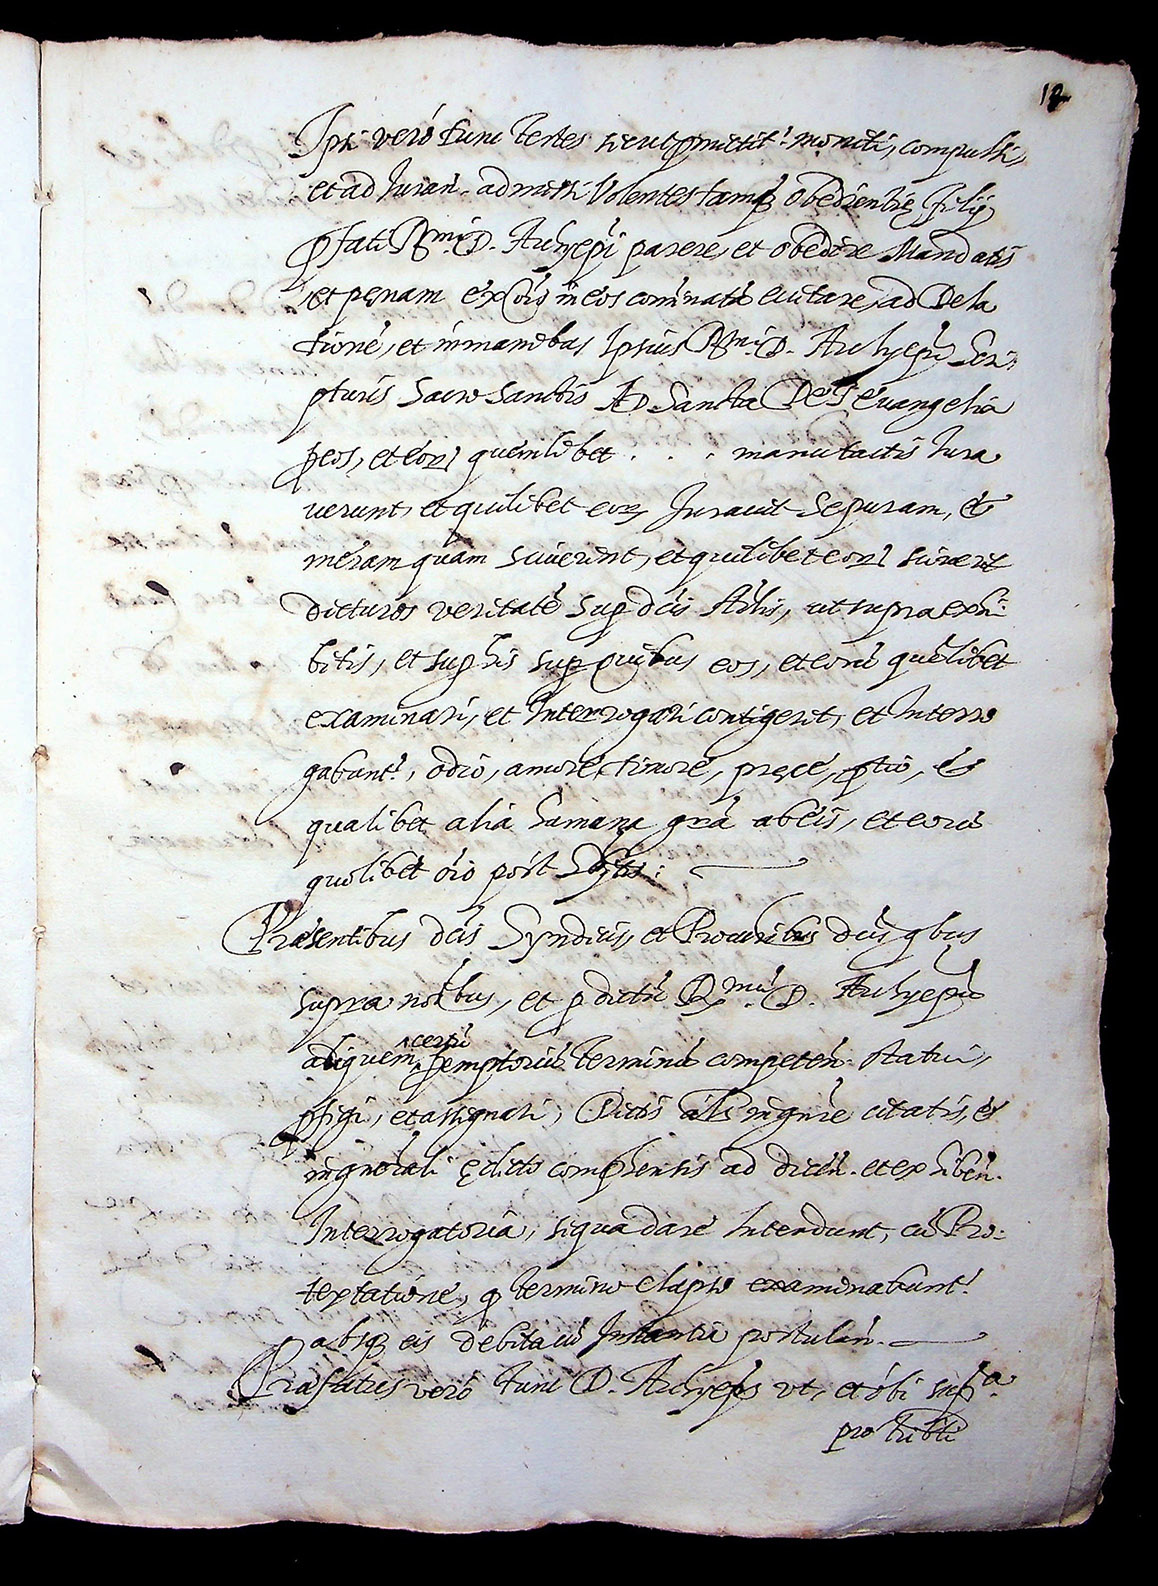 12
Ipsi verò tunc Testes sicut pmittit.r moniti, compulsi,
et ad Iuran. admitti Volentes tamq obedientię filij
pfati Rmi D. Archyepi parere, et obedire Mandatis
et pęnam excõis in eos cominatã euitare, ad Dela
tionẽ, et in manibus Ipsius Rmi D. Archyepi Scri:
pturis Sacro Sanctis AD Sancta Dei euangelia
p eos, et eor quemlibet . . . manu tactis Iura
uerunt, et quilibet eor Iurauit se puram, &
meram quam sciuerint, et quilibet eor sciuerit
dicturos veritatẽ sup dĩs Artlis, ut supra exhi:
bitis, et sup his sup quibus eos, et eorũ quẽlibet
examinari, et Interrogari contigerit, et Interro
gabunt.r, odio, amore, timore, pręce, ptio, &
qualibet alia humana grã ab eis, et eorũ
quolibet oĩo post
Præsentibus dĩs Syndicis, et Procuribus dĩs qbus
supra noĩbus, et p dictũ Rmũ D. Archyepũ
aliquem certũ pemptoriũ Terminũ competen. statui,
pfigi, et assignari, Dictis aĩs in gnĩe citatis, et
in gnẽrali ędicto comphensis ad dicen. et exhiben.
Interrogatoria, siqua dare Intendunt, cũ Pro:
testatione, q termino elapso examinabunt.r
absq eis debita cũ Instantia postulan.
Præfatus verò tunc D. Archyepus vt, et ubi supra
pro tribli